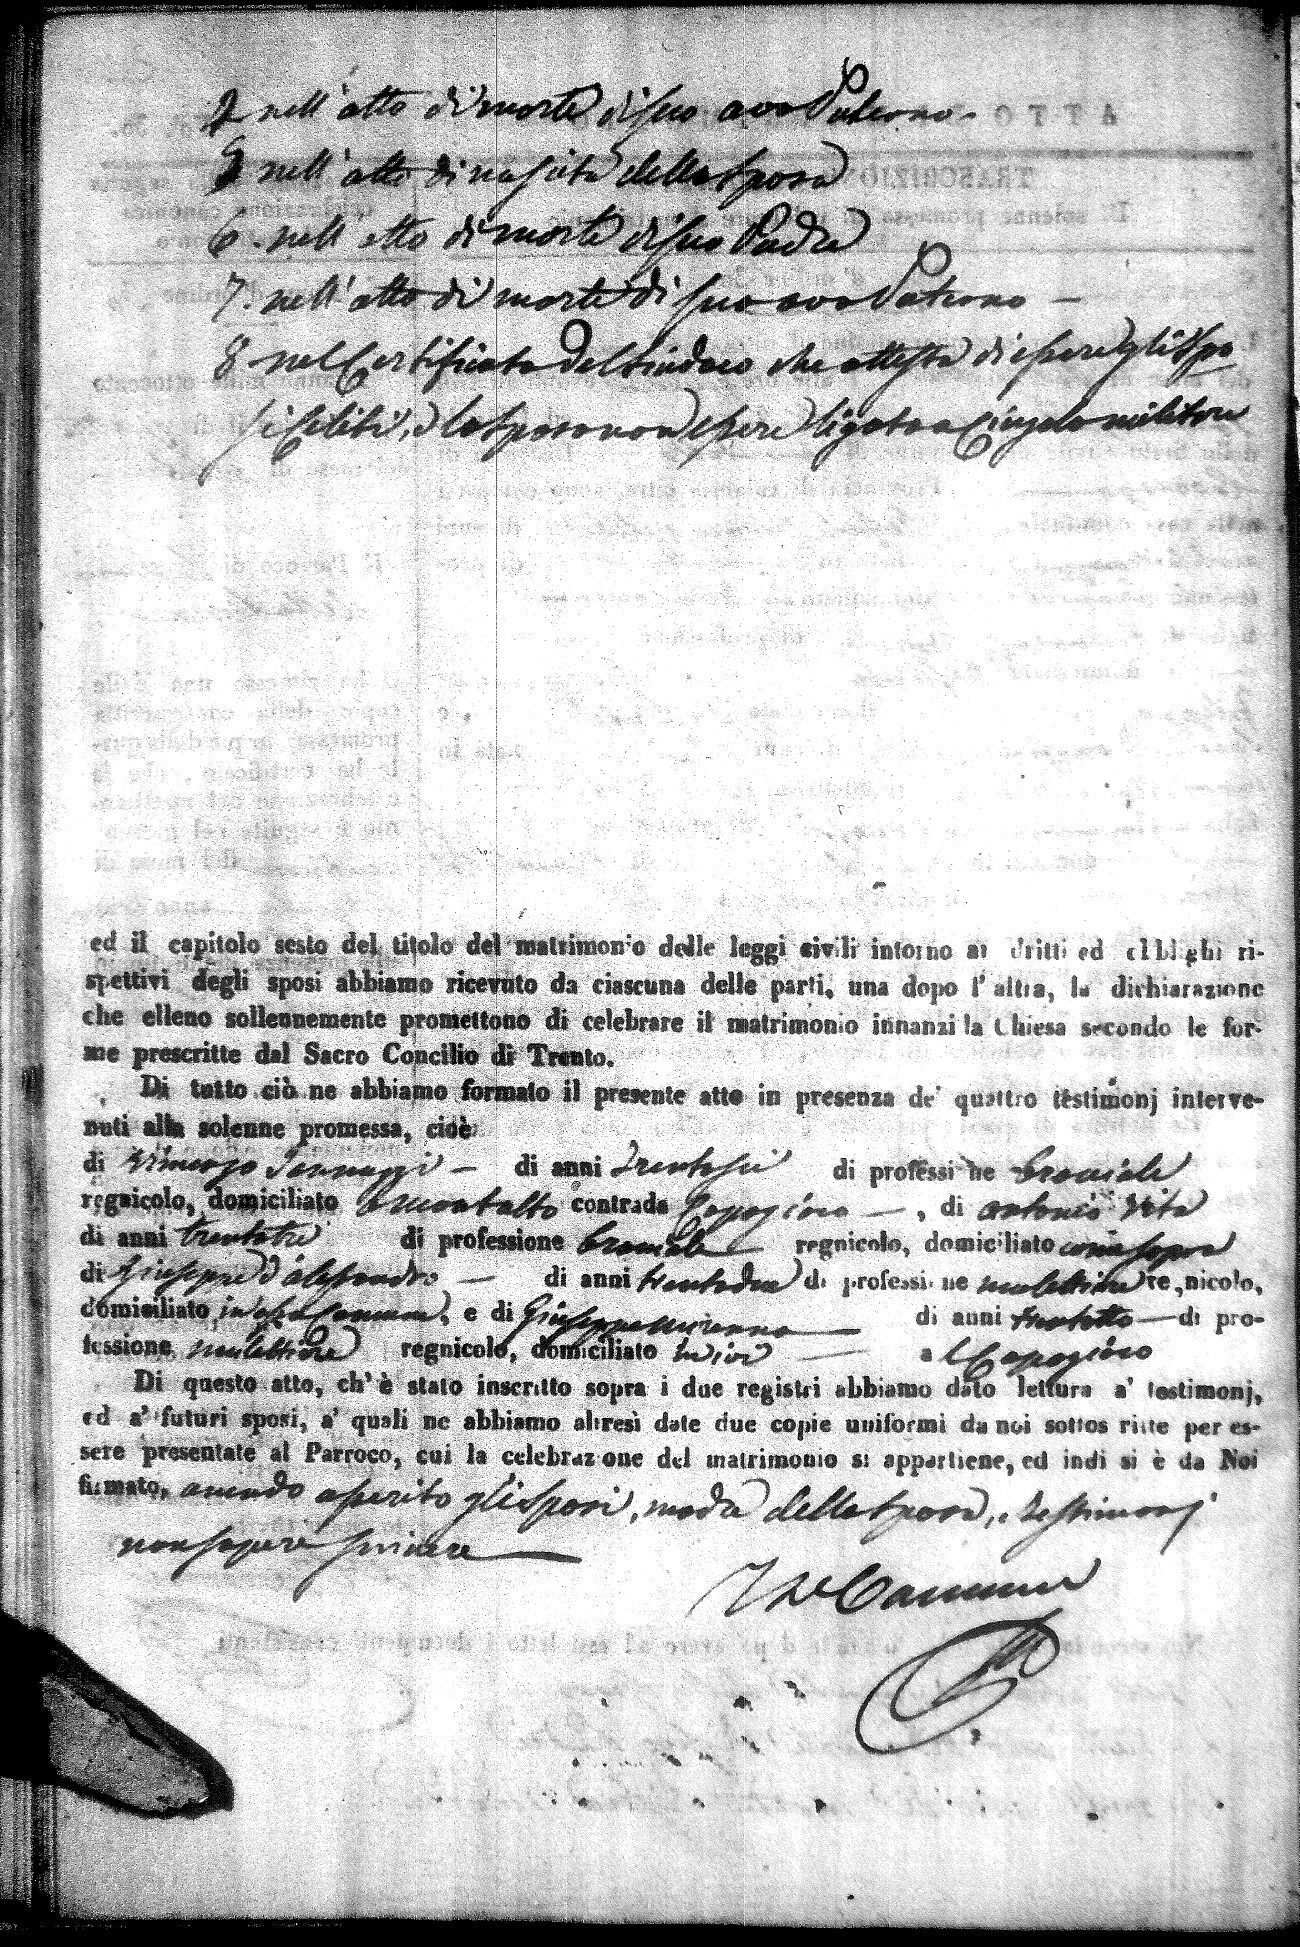 nell'atto di morte di suo avo Paterno.
5 nell'atto di nascita della sposa
6. nell'atto di morte di suo Padre
7. nell'atto di morte di suo avo Paterno —
8. nel Certificato del Sindaco che attesta di essere gli Spo
si celibi, e la sposa non essere ligata a Cingolo militare
ed il capitolo sesto del titolo del matrimonio delle leggi civili intorno ai dritti ed obblighi ri-
spettivi degli sposi abbiamo ricevuto da ciascuna delle parti, una dopo l'altra, la dichiarazione
che elleno sollennemente promettono di celebrare il matrimonio innanzi la Chiesa secondo le for-
me prescritte dal Sacro Concilio di Trento.
Di tutto ciò ne abbiamo formato il presente atto in presenza de' quattro testimonj interve-
nuti alla solenne promessa, cioè
di Vincenzo — di anni trentasei di professione bracciale
regnicolo, domiciliato Montalto contrada Capogioco —, di Antonio Vita
di anni trentatre di professione bracciale regnicolo, domiciliato come sopra
di Giuseppe d'Alessandro — di anni trentadue di professione mulattiere regnicolo,
domiciliato in detto Comune, e di Giuseppe — di anni trentotto — di pro-
fessione mulattiere regnicolo, domiciliato ivi — al Capogioco
Di questo atto, ch'è stato inscritto sopra i due registri abbiamo dato lettura a' testimonj,
ed a' futuri sposi, a' quali ne abbiamo altresì date due copie uniformi da noi sottoscritte per es-
sere presentate al Parroco, cui la celebrazione del matrimonio si appartiene, ed indi si è da Noi
firmato, avendo asserito gli sposi, madre della sposa, e testimonj
non sapere scrivere —